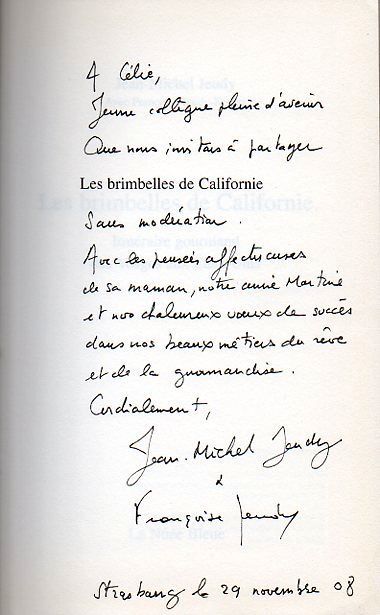 A Célie,
Jeune collègue pleine d'avenir
Que nous invitons à partager
Les brimbelles de Californie
Sans modération.
Avec les pensées affectueuses
de sa maman, notre amie Martine
et nos chaleureux vœux de succès
dans nos beaux métiers du rêve
et de la gourmandise.
Cordialement,
Jean-Michel Jeudy
&
Françoise Jeudy
Strasbourg le 29 novembre 08